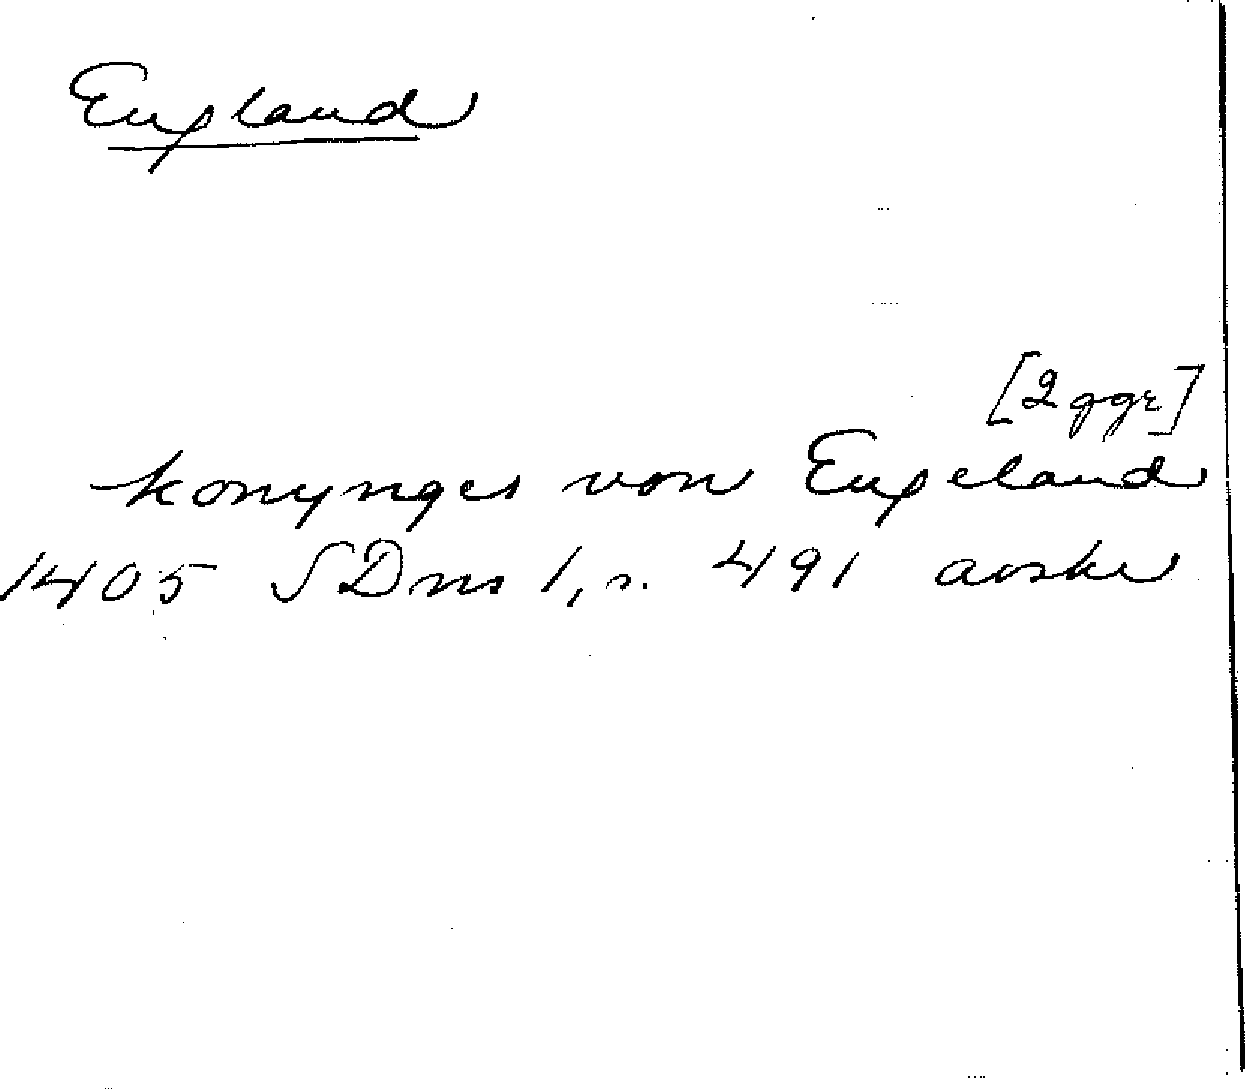 England
[2 ggr]
konynges von Engeland
1405 SDns 1, s. 491 avskr